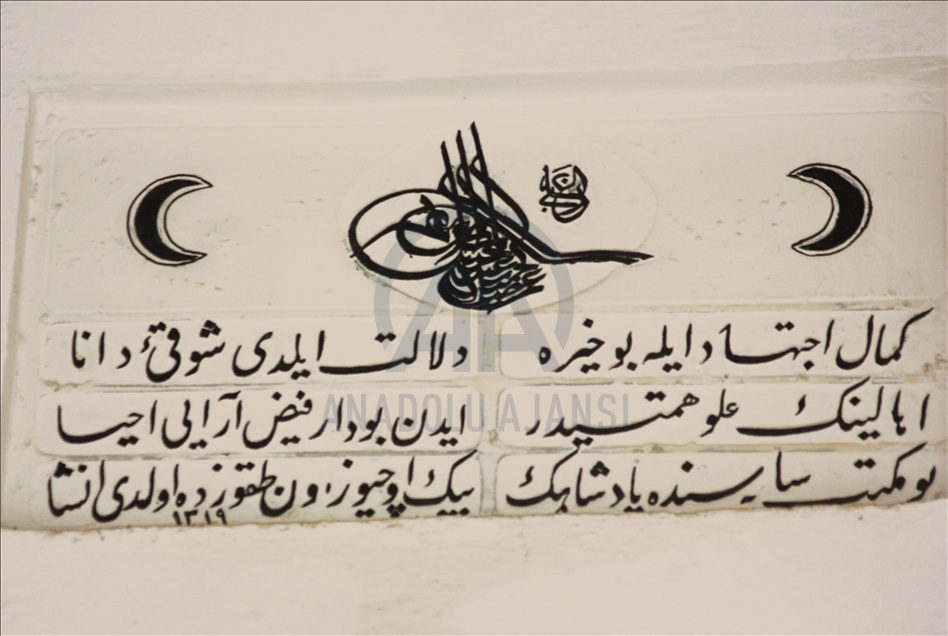 كمال اجتهاد ايله بو خيره دلالت ايلدى شوقئ دانا
اهالينك علو همتيدر ايدن بو دار فيض آرايى احيا
بو مكتب سايه سنده پادشاهك بيك اوچيوز اون طقوزده اولدى انشا
١٣١٩
ANADOLU AJANSI